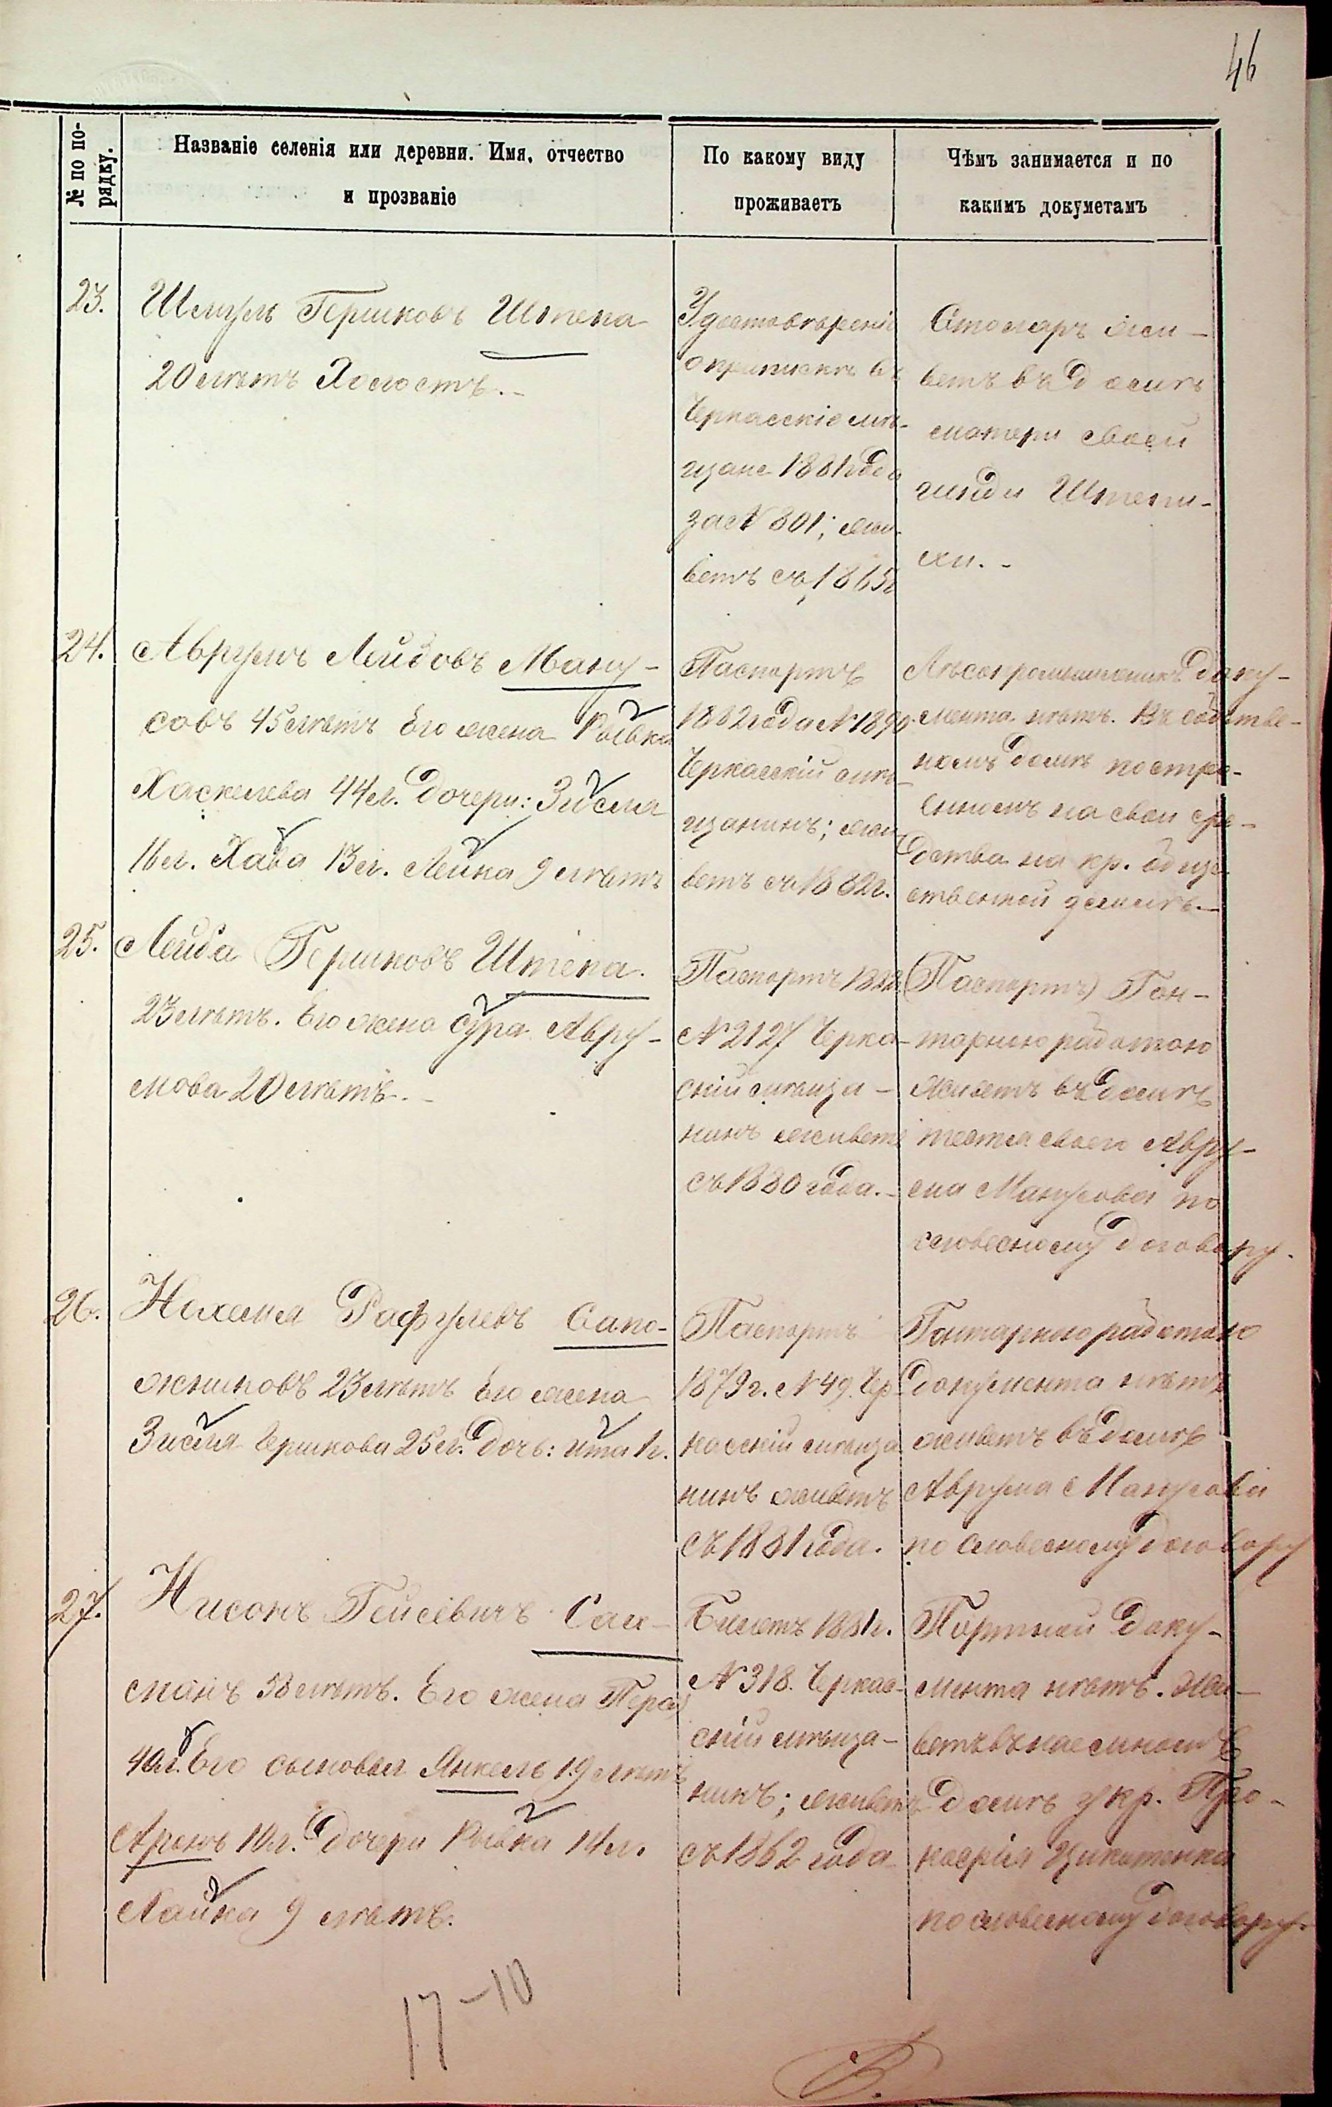 46
№ по по-
рядку.
Названіе селенія или деревни. Имя, отчество
и прозваніе
По какому виду
проживаетъ
Чѣмъ занимается и по
какимъ докуметамъ
23.
Шмуль Гершковъ Штепа
20 лѣтъ Холостъ. -
Удостовѣреніе
о припискѣ въ
Черкасскіе мѣ-
щане 1881 года
за № 301; жи-
ветъ съ 1865 г
Столяръ жи-
ветъ въ домѣ
матери своей
Штепи-
хи. -
24.
Аврумъ Лейбовъ Ману-
совъ 45 лѣтъ Его жена Рывка
Хаскелева 44 л. Дочери: Зисля
16 л. Хава 13 л. Лейка 9 лѣтъ
Паспортъ
1882 года № 1890
Черкасскій мѣ-
щанинъ; жи-
ветъ съ 1882 г.
Лѣсопромышленникъ доку-
мента нѣтъ. Въ собстве-
номъ домѣ постро-
енномъ на свои сре-
дства на кр. обще-
ственной землѣ. -
25.
Лейба Гершковъ Штепа.
23 лѣтъ. Его жена Сура Авру-
мова 20 лѣтъ. -
Паспортъ 1882
№ 2127 Черка-
скій мѣща-
нинъ живетъ
съ 1880 года. -
(Паспортъ) Гон-
тарною работою
Живетъ въ домѣ
тестя своего Авру-
ма Манусова по
словесному договору.
26.
Нахема Рафулевъ Сапо-
жниковъ 23 лѣтъ Его жена
Зисля Гершкова 25 л. Дочь: Ита 1 г.
Паспортъ
1879 г. № 49. Чер
касскій мѣща
нинъ живетъ
съ 1881 года.
Гонтарною работою
документа нѣтъ
живетъ въ домѣ
Аврума Манусова
по словесному договору
27.
Нисонъ Гейсевичъ Сал-
манъ 58 лѣтъ. Его жена
40 л. Его сыновья Янкель 19 лѣтъ
Аронъ 10 л. дочери Рывка 14 л.
Хайка 9 лѣтъ.
Билетъ 1881 г.
№ 318. Черкас-
скій мѣща-
нинъ; живетъ
съ 1862 года
Портной Доку-
мента нѣтъ. Жи-
ветъ въ наемномъ
домѣ у кр. Про-
кофія
по словесному договору.
17-10